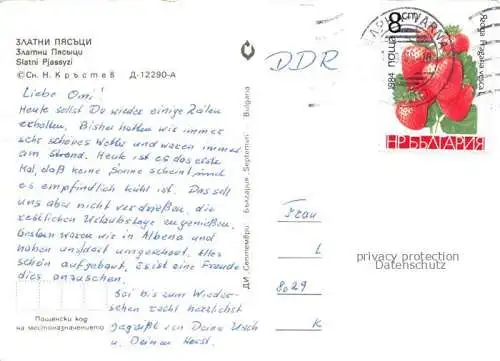 ЗЛАТНИ ПЯСЪЦИ
Златни Пясъци
Slatni Pjassyzi
© Сн. Н. Кръстев Д-12290-А
Liebe Omi!
Heute sollst Du wieder einige Zeilen
erhalten. Bisher hatten wir immer
sehr schönes Wetter und waren immer
am Strand. Heute ist es das erste
Mal, daß keine Sonne scheint und
es empfindlich kühl ist. Das soll
uns aber nicht verdrießen, die
restlichen Urlaubstage zu genießen.
Gestern waren wir in Albena und
haben uns dort umgeschaut. Alles
schön aufgebaut, es ist eine Freude
dies anzuschauen.
Sei bis zum Wieder-
sehen recht herzlichst
gegrüßt von Deiner Usch
u. Deinem Horst.
Пощенски код
на местоназначението
ДИ „Септември" България „Septemvri" Bulgaria
DDR
VARNA
8 СТ
ПОЩА
1984
НР БЪЛГАРИЯ
Ягода Fragaria vesca L.
Frau
L
privacy protection
Datenschutz
8029
K